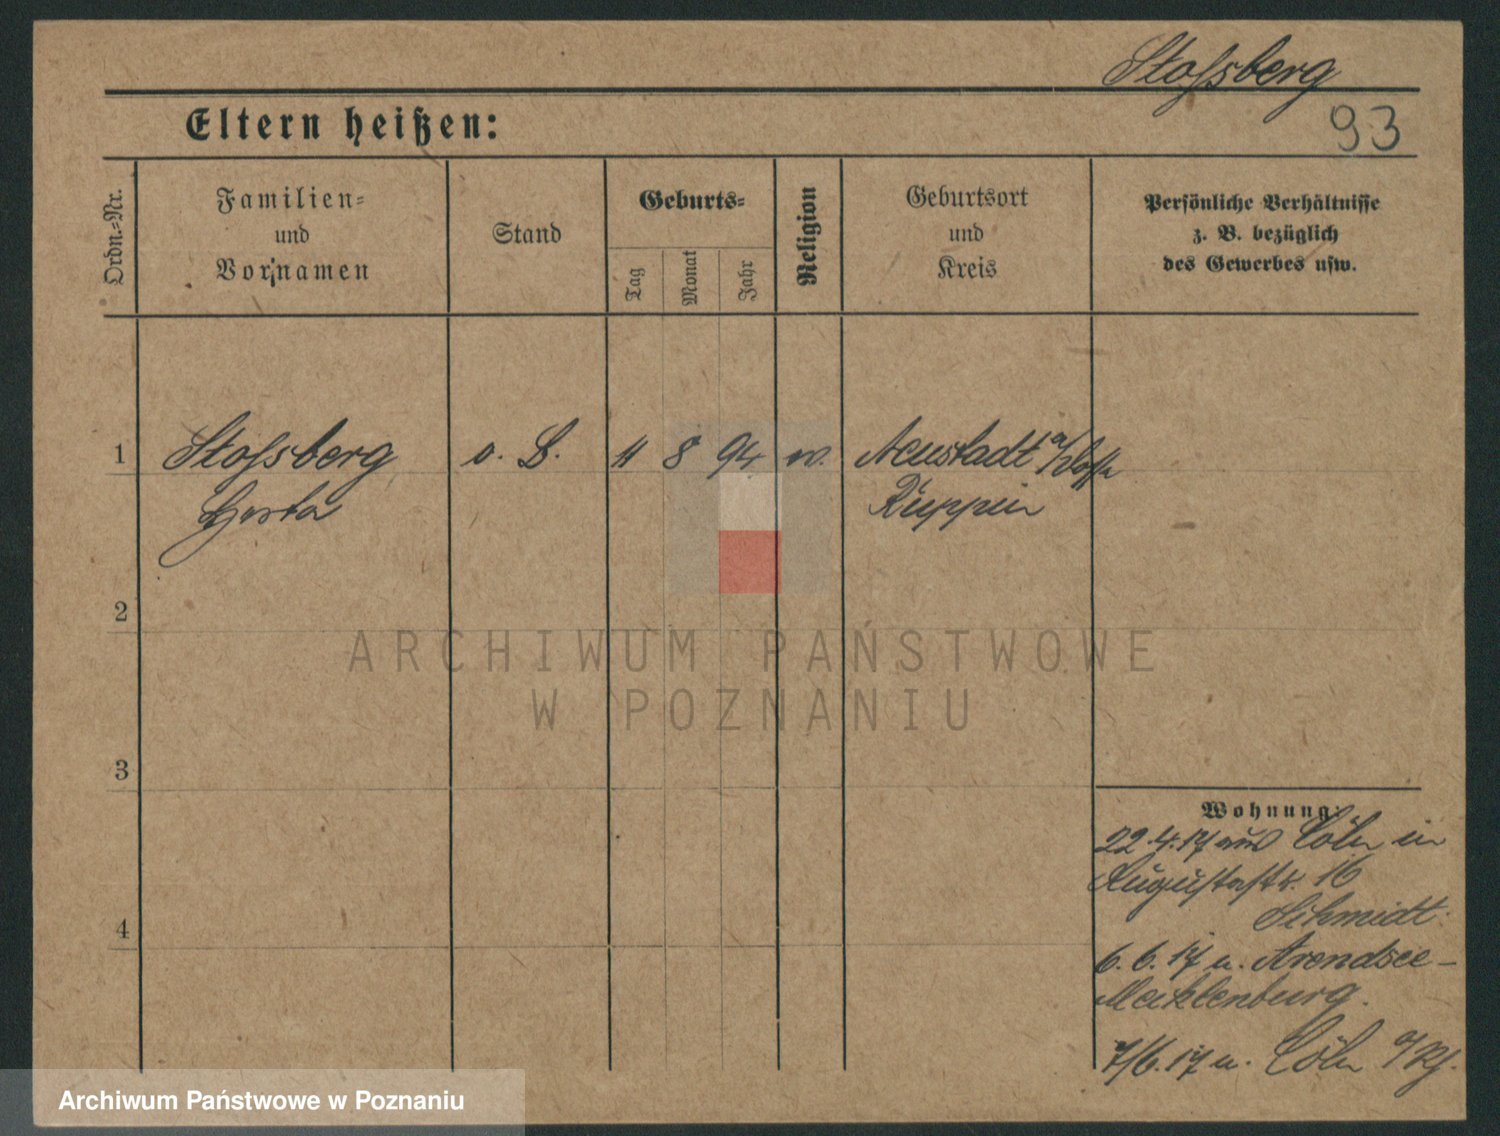 Stoßberg
93
Eltern heißen:
Ordn.-Nr.
Familien-
und
Vornamen
Stand
Geburts-
Tag
Monat
Jahr
Religion
Geburtsort
und
Kreis
Persönliche Verhältnisse
z. B. bezüglich
des Gewerbes usw.
1
Stoßberg o. B. 11 8 94 Neustadt a/Dosse
Herta Ruppin
2
ARCHIWUM PAŃSTWOWE
W POZNANIU
3
Wohnung:
22.4.17 aus Cöln in
Augustastr. 16
Schmidt.
4
6.6.17 n. Arendsee-
Mecklenburg.
7/6.17 n. Cöln a/Rh.
Archiwum Państwowe w Poznaniu